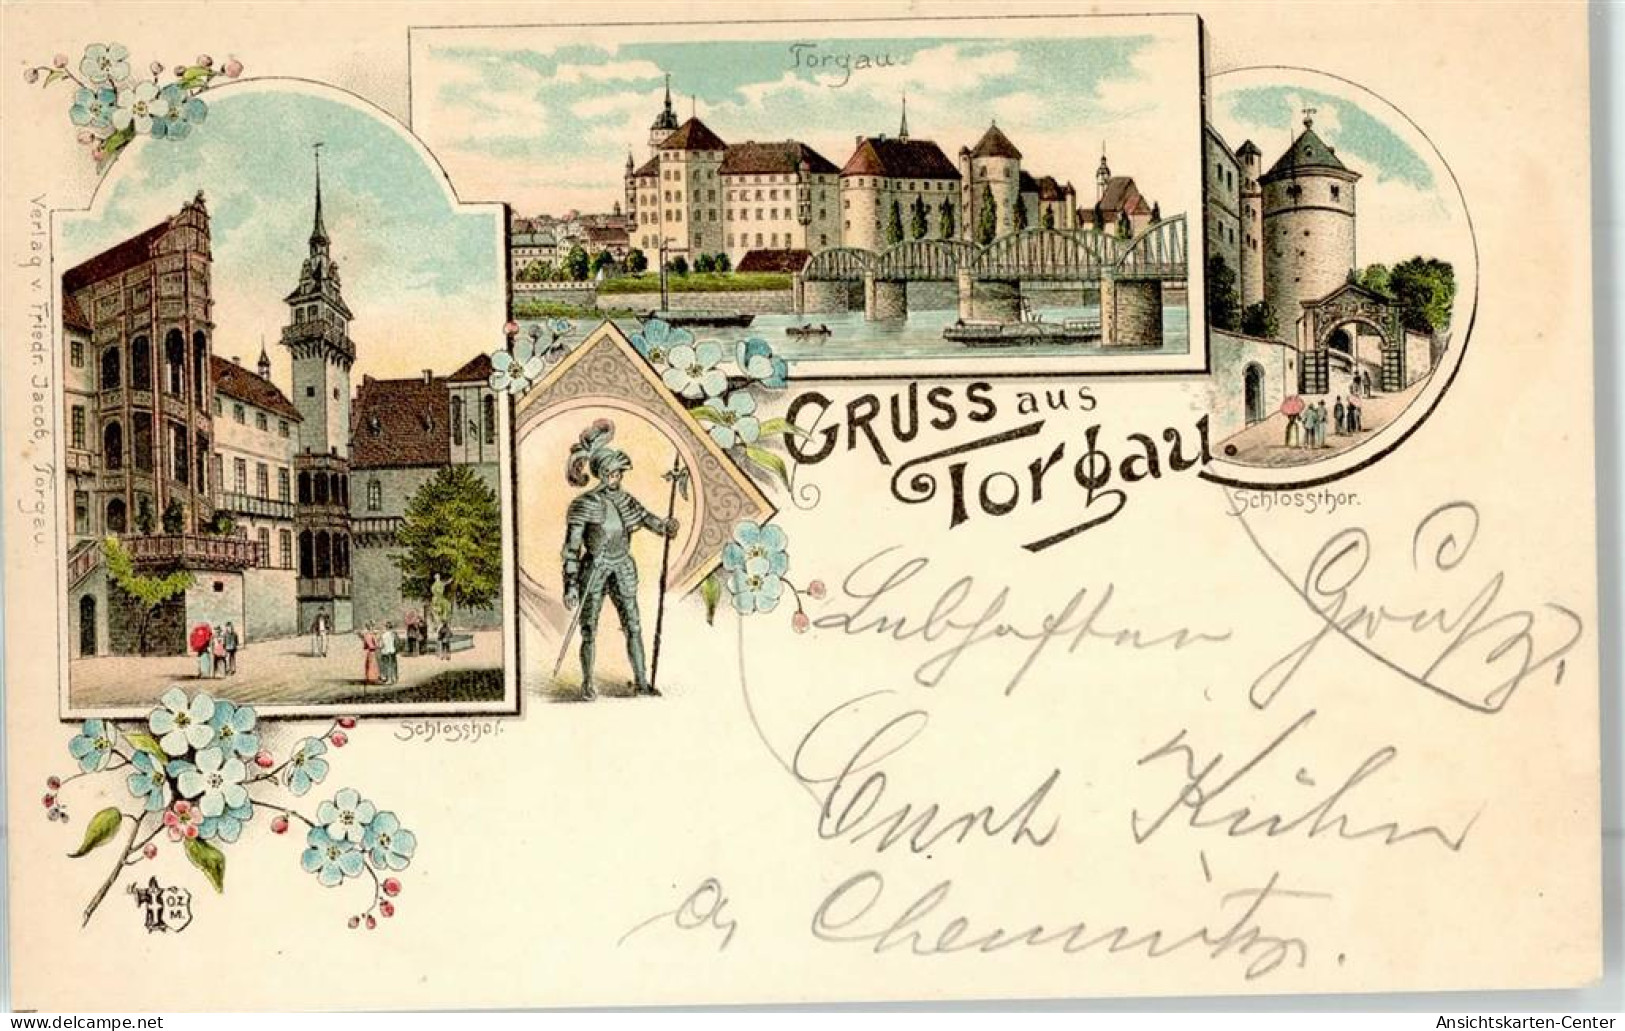 Torgau.
GRUSS aus
Torgau.
Schlossthor.
Schlosshof.
Verlag v. Friedr. Jacob, Torgau.
O.Z.
M.
Lebhaften Gruß,
Curt Kühn
a/ Chemnitz.
www.delcampe.net
AK_card
Ansichtskarten-Center